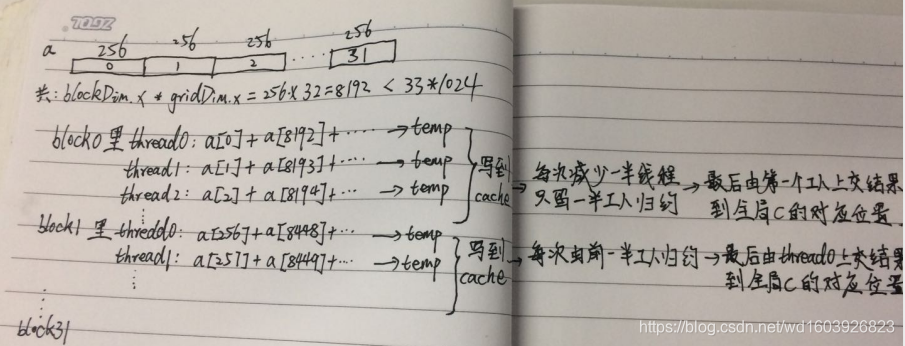 256 256 256 256
a 0 1 2 ····· 31
共: blockDim.x * gridDim.x = 256 x 32 = 8192 < 33*1024
block0里 thread0: a[0] + a[8192] + ···· → temp
thread1: a[1] + a[8193] + ···· → temp
thread2: a[2] + a[8194] + ···· → temp
写到 cache → 每次减少一半线程 只留一半工人归约 → 最后由第一个工人上交结果 到全局C的对应位置
block1里 thread0: a[256] + a[8448] + ···· → temp
thread1: a[257] + a[8449] + ··· → temp
写到 cache → 每次由前一半工人归约 → 最后由thread0上交结果 到全局C的对应位置
block31
https://blog.csdn.net/wd1603926823